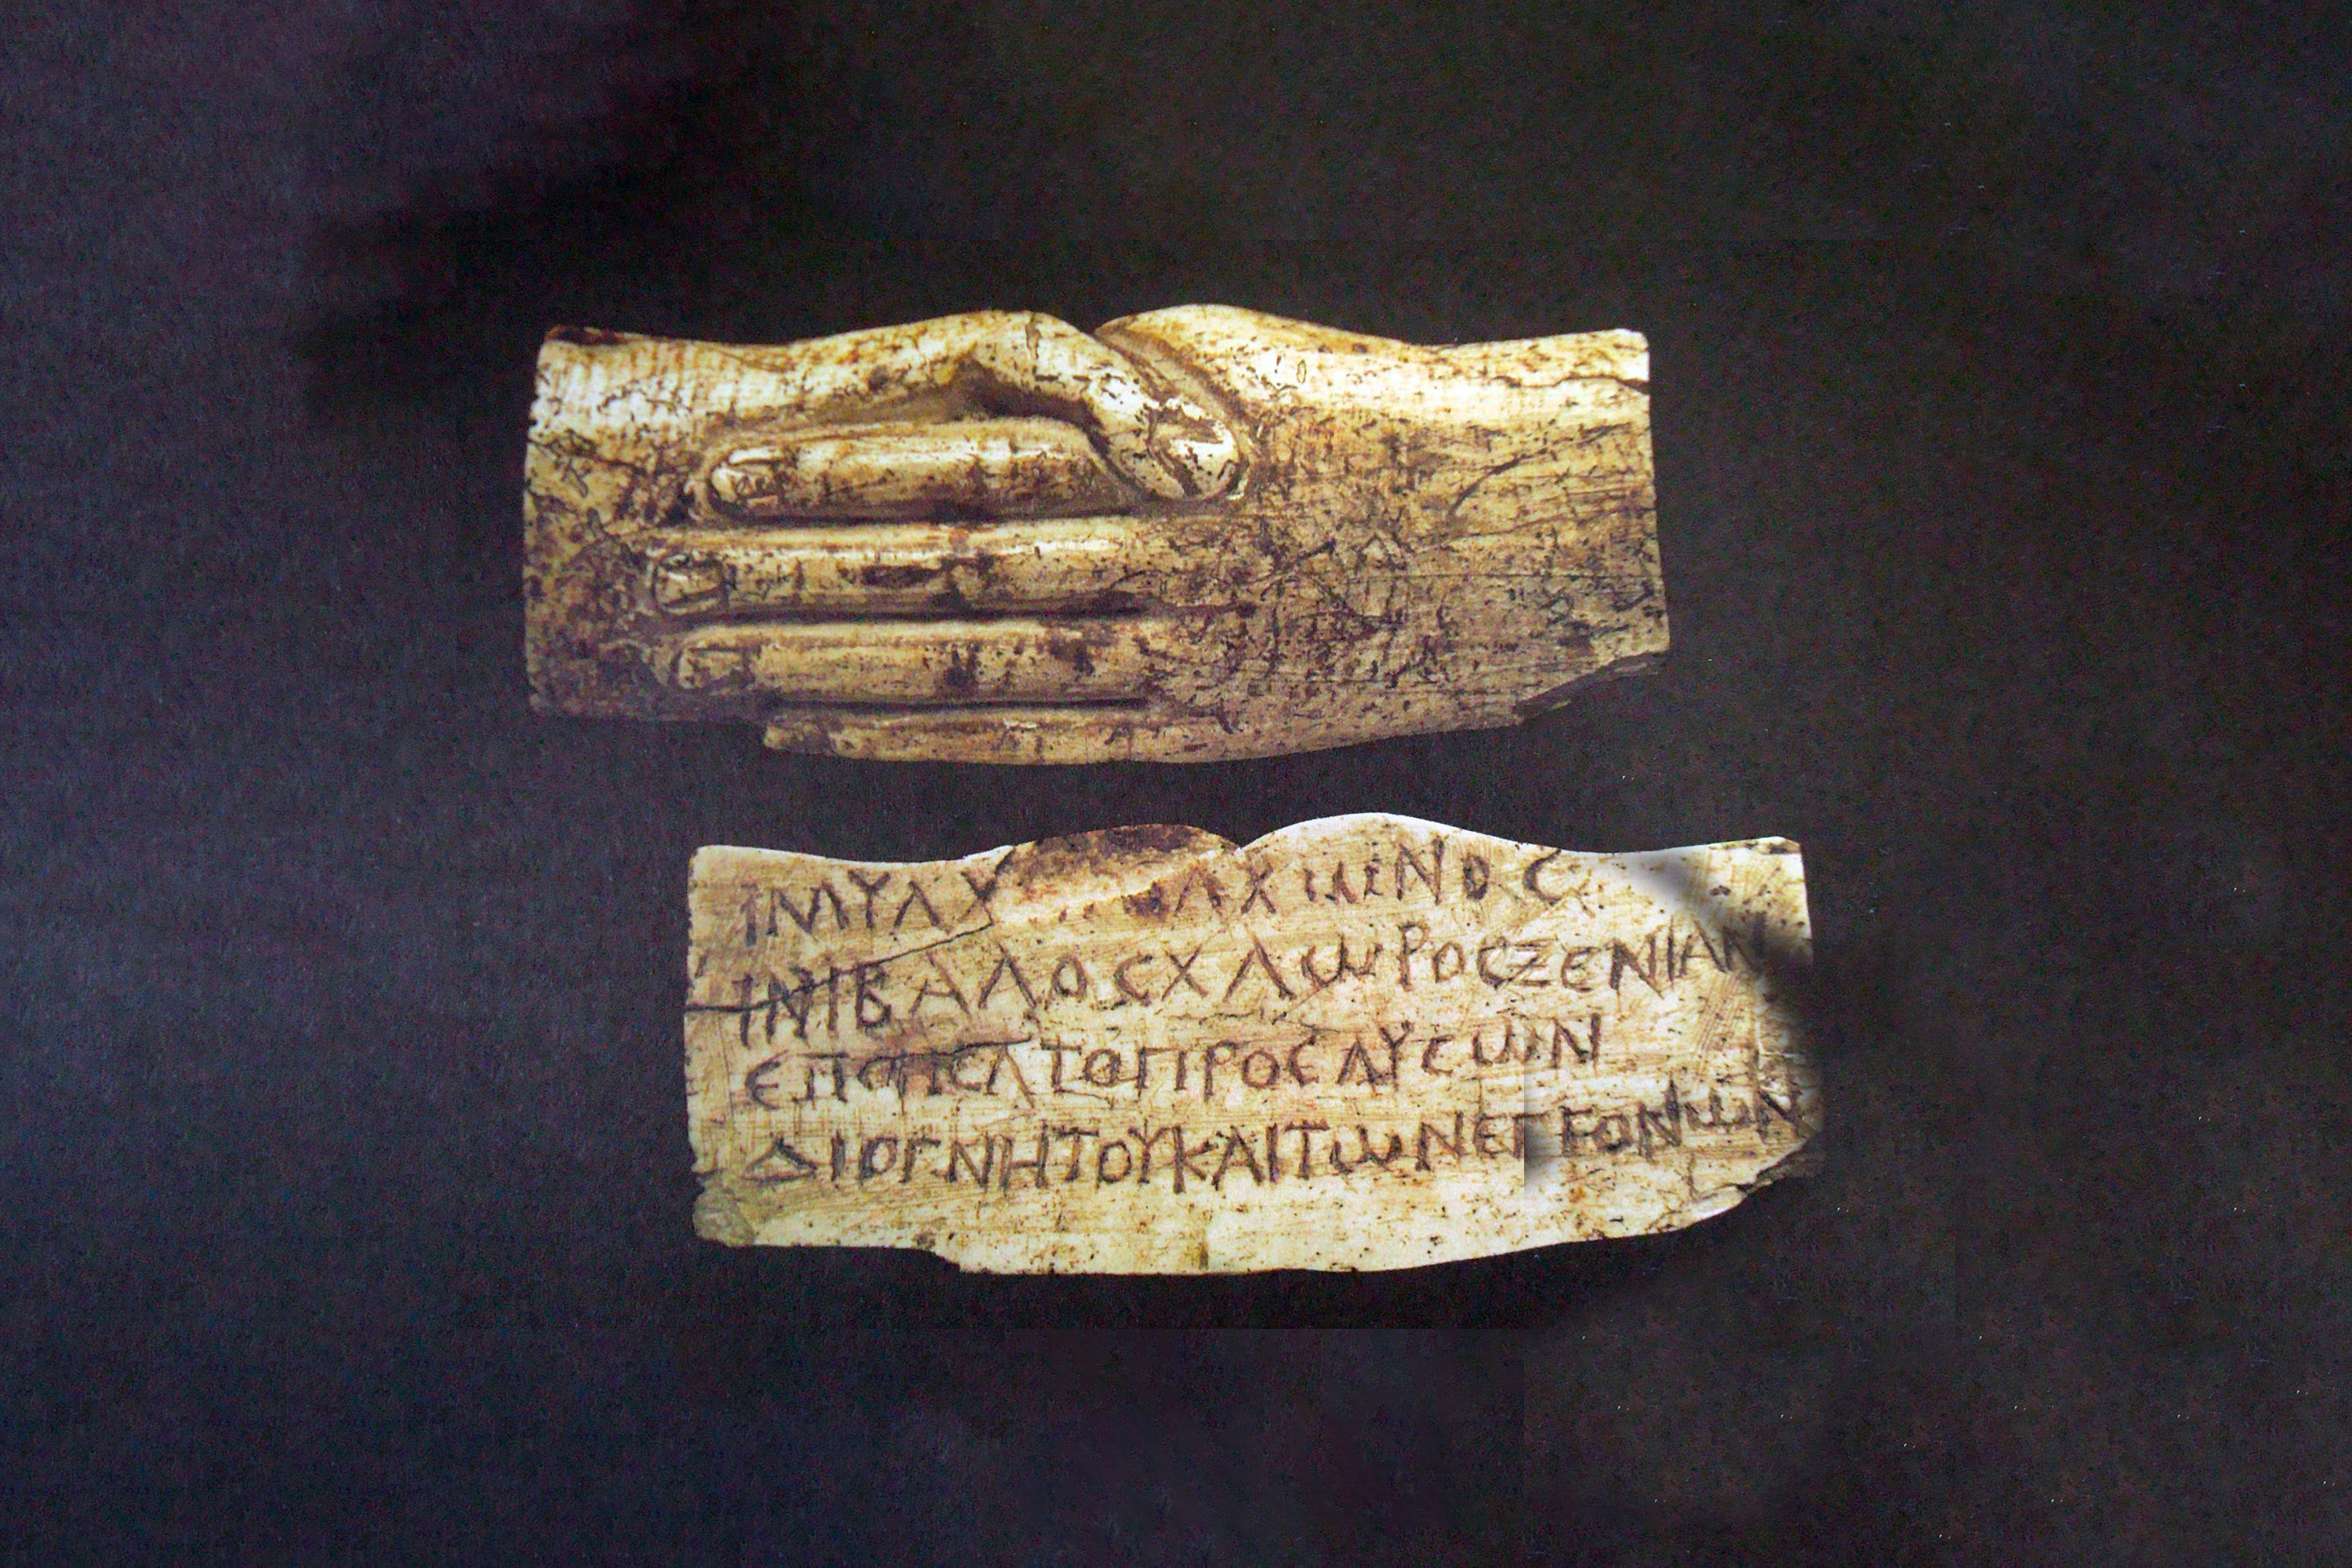 ΙΜΥΛΧ
ΙΝΙΒΑΛΟϹΧΛωΡΟϹΞΕΝΙΑΝ
ΕΠΟΗϹΑΤΟΠΡΟϹΛΥϹωΝ
ΔΙΟΓΝΗΤΟΥΚΑΙΤωΝΕΓΓΟΝωΝ